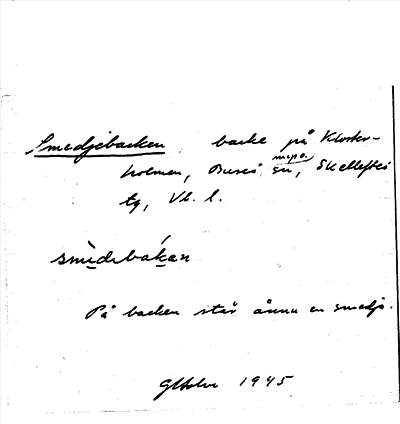 Smedjebacken, backe på Kloster-
holmen, Bureå mspr. sn, Skellefteå
tg, Vb. l.
smèdɩbákan
På backen står ännu en smedja.
GHolm 1945